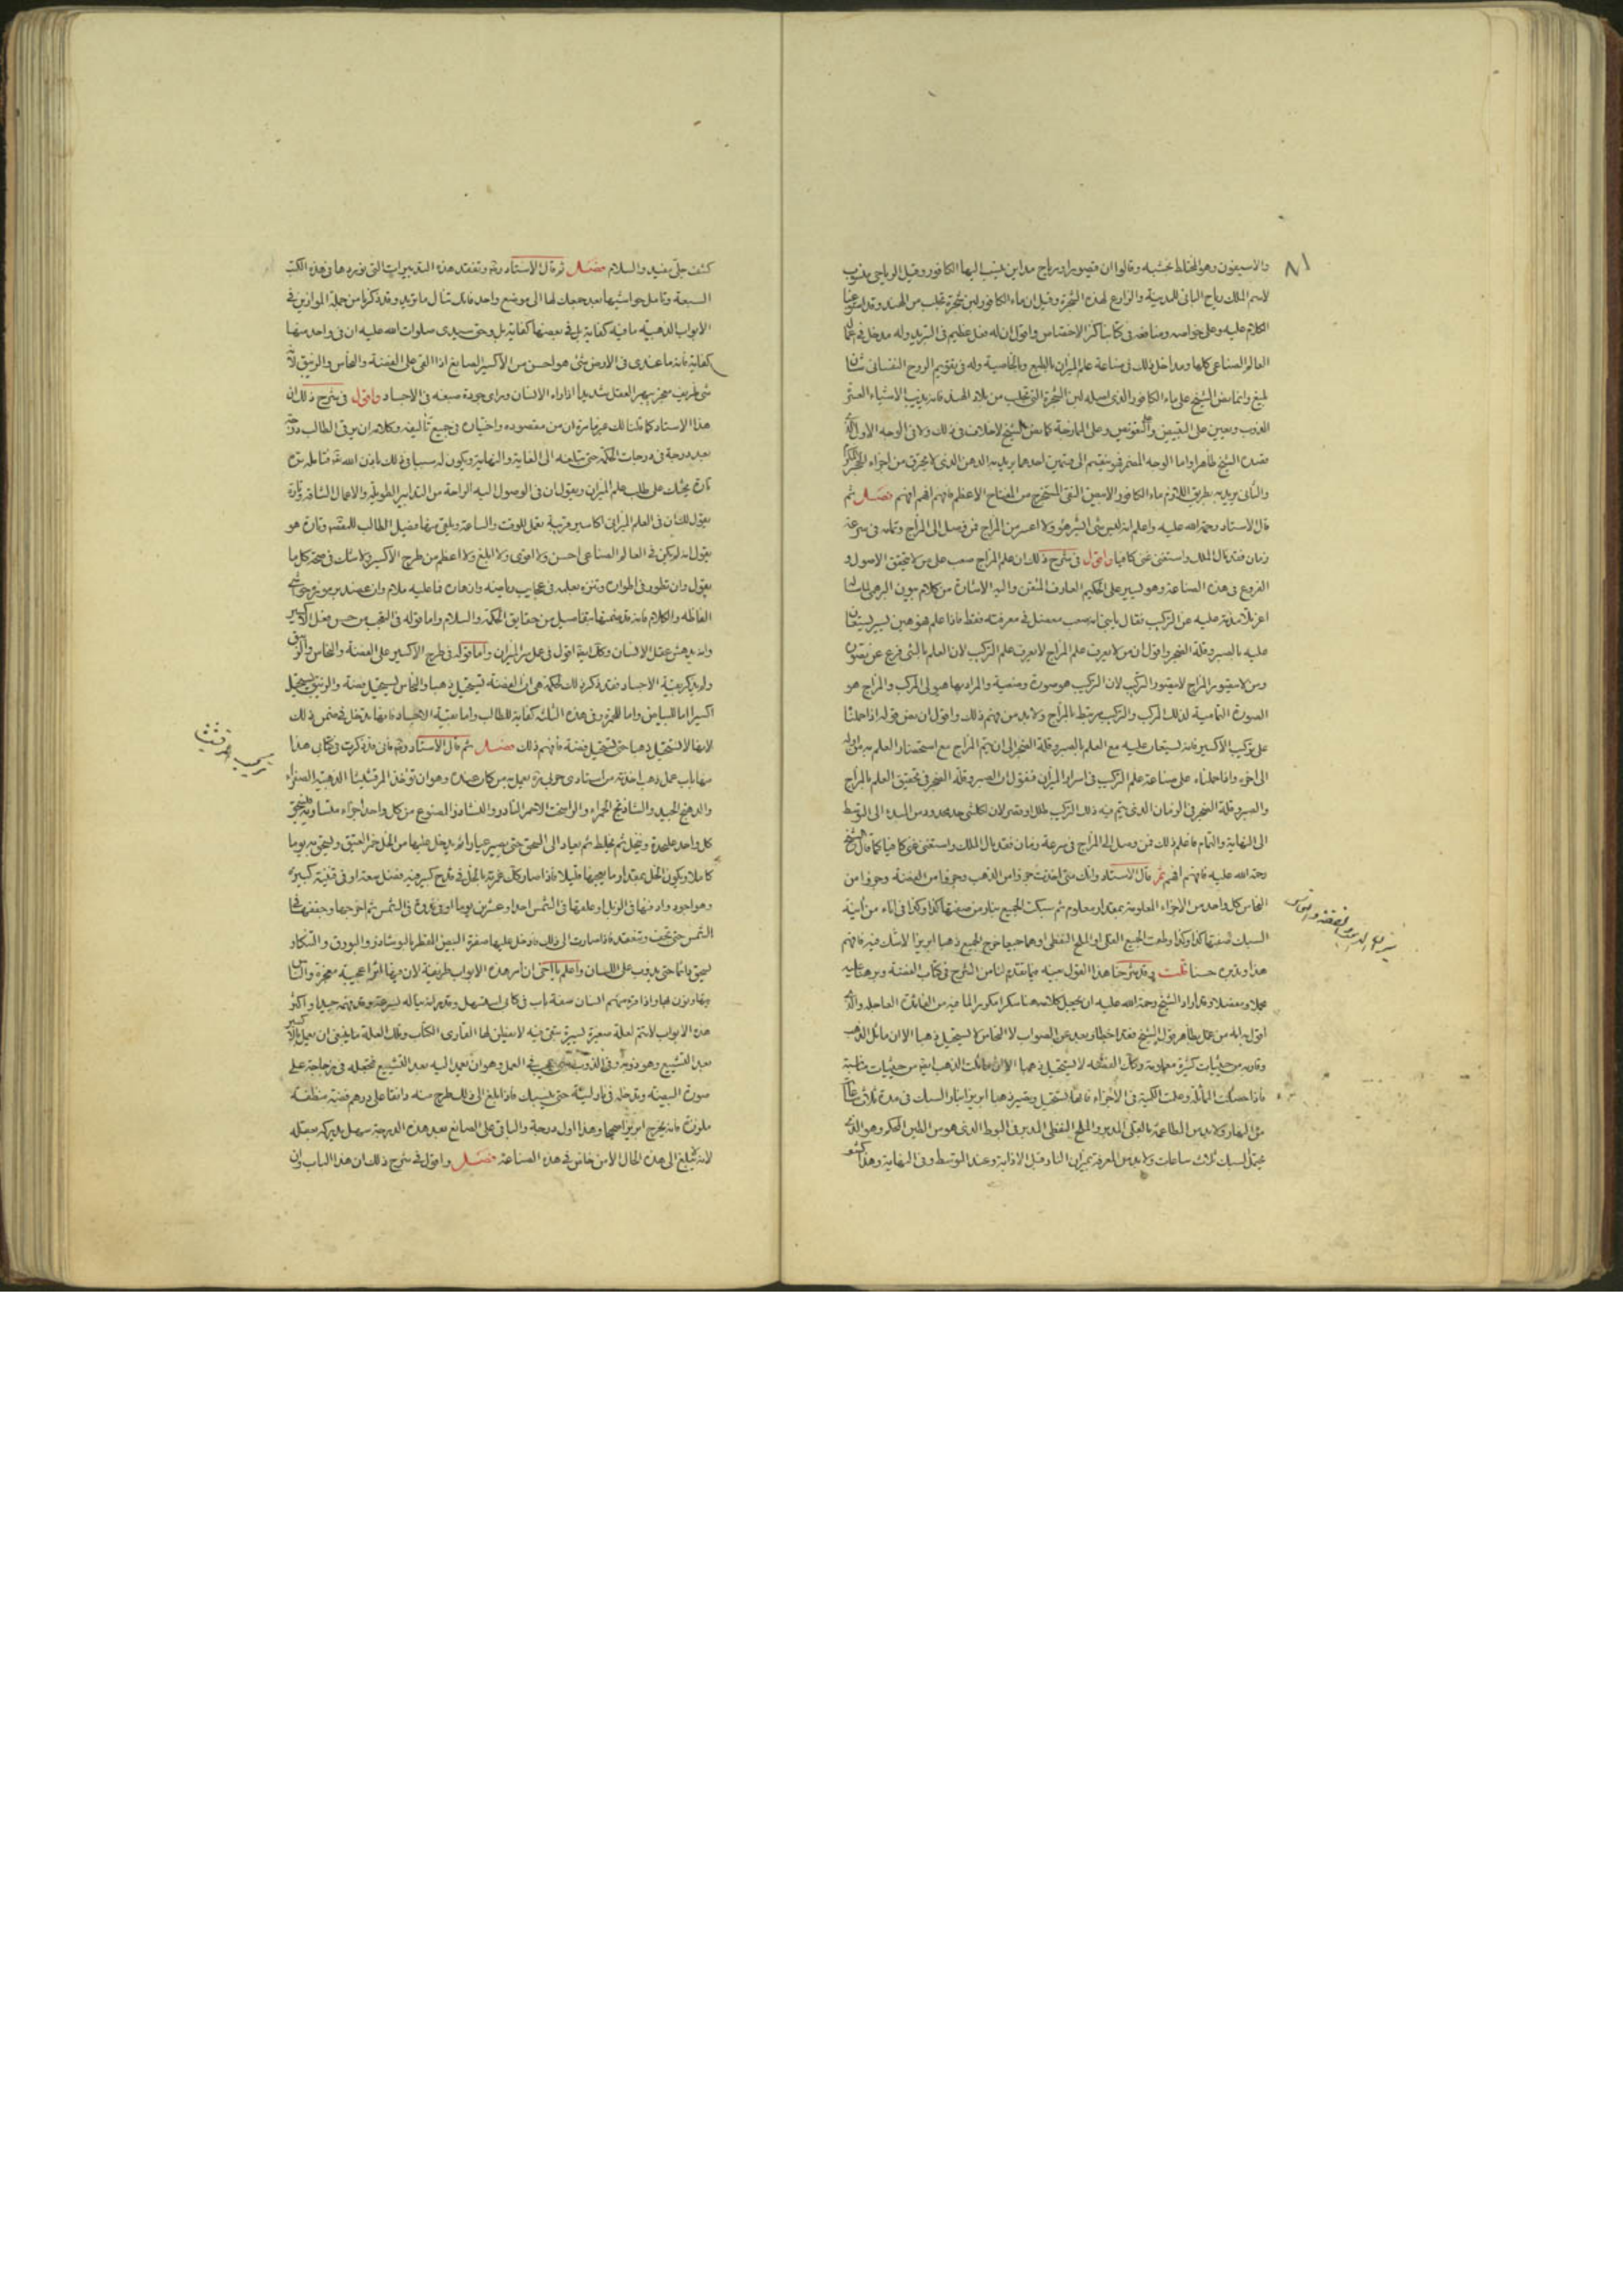 ٨١
والاسفيون وهو المختلط بخشبه وقالوا ان فنصور اورباح مداين ينسب اليها الكافور وقيل الرباحى منسوب
لاسم الملك رباح البانى للمدينة والزارع لهذه الشجرة وقيل ان ماء الكافور لبن شجرة تجلب من الهند وقد
الكلام عليه وعلى خواصه ومنافعه فى كتابنا كنز الاختصاص واقول ان له فعل عظيم فى التبريد وله مدخل فى
العالم الصناعى كلها ومداخل ذلك فى صناعة علم الميزان بالطبع وبالخاصية وله فى تقويم الروح النفسانى شان
بليغ وانما نص الشيخ على ماء الكافور الذى اصله لبن الشجرة التى تجلب من بلاد الهند فانه يذيب الاشياء
الذوب ويعين على التبييض وعلى الممازجة كما نص الشيخ لاخلاف فى ذلك ولا فى الوجه الاول
فقصد الشيخ ظاهرا واما الوجه المضمر فهو ينقسم الى قسمين احدهما يريد به الدهن الذى لا يحترق من اجزاء الحجر
والثانى يريد به بطريق اللازم ماء الكافور الابيض النقى المستخرج من المفتاح الاعظم فافهم افهم افهم فصل ثم
قال الاستاد رحمة الله عليه واعلم انه ليس شى ولا اعسر من المزاج فمن وصل الى المزاج وتمامه فى سرعة
زمان فقد نال الملك واستغنى غنى كافيا واقول فى شرح ذلك ان علم المزاج صعب على من لا يتحقق الاصول و
الفروع فى هذه الصناعة وهو يسير على الحكيم العارف المتقن واليه الاشارة من كلام بيون البرهمى لما سأله
اعز تلامذته عليه عن التركيب فقال يا بنى انه صعب معضل فى معرفته فقط فاذا علم هو هين يسير يستعان
عليه بالصبر وقلة الضجر واقول ان من لا يعرف علم المزاج لا يعرف علم التركيب لان العلم بالشى فرع عن تصوره
ومن لا يتصور المزاج لا يتصور التركيب لان التركيب هو صورة وضعية والمراد بها هيولى المركب والمزاج هو
الصورة التمامية لذلك المركب والتركيب مرتبط بالمزاج ولا بد من فهم ذلك واقول ان معنى قوله اذا حملنا
على تركيب الاكسير فانه يستعان عليه مع العلم بالصبر وقلة الضجر الى ان يتم المزاج مع استحضار العلم به من اوله
الى اخره واذا حملناه على صناعة علم التركيب فى اسرار الميزان فنقول ان الصبر وقلة الضجر فى تحقيق العلم بالمزاج
والصبر وقلة الضجر فى الزمان الذى يتم فيه ذلك التركيب طال او قصر لان لكل شى حد محدود من المبدا الى الوسط
الى النهاية والتمام فاعلم ذلك فمن وصل الى المزاج فى سرعة زمان فقد نال الملك واستغنى غنى كافيا كما قال الشيخ
رحمة الله عليه فافهم افهم ثم قال الاستاد وانك متى اخذت جزوا من الذهب وجزوا من الفضة وجزوا من
النحاس كل واحد من الاجزاء المعلومة بمقدار معلوم ثم سبكت الجميع بنار من صفتها كذا وكذا فى اناء من آنية
السبك صفتها كذا وكذا وطعت الجميع القلى او الملح القلى او هما جميعا خرج الجميع ذهبا ابريزا لاشك فيه فافهم
هذا وبين حسنا قلت وقد شرحنا هذا القول مبينه فيما تقدم لنا من الشرح فى كتاب الفضة وبرهنا عليه
مجملا ومفصلا وانما اراد الشيخ رحمة الله عليه ان يجعل كلامه هنا مكررا لما فيه من الفائدة العاجلة والذى
اقول به انه من عمل بظاهر قول الشيخ فقد اخطا وبعد عن الصواب لان النحاس لا يستحيل ذهبا الا ان ماثل الذهب
وقاربه من حيثيات كثيرة معلومة وكذلك الفضة لا تستحيل ذهبا الا ان ماثلت الذهب ايضا من حيثيات متقاربة
فاذا حصلت المماثلة وعلمت الكمية فى الاجزاء فانها تستحيل وتصير ذهبا ابريزا بنار السبك فى مدة ثلاث ساعات
من النهار ولا بد من الطاعمة بالقلى المدبر والملح القلى المدبر فى البوط الذى هو من الطين المحكم وهو الذى
يحتمل السبك ثلاث ساعات ولا بد من المعرفة بميزان النار قبل الاذابة وعند التوسط وفى النهاية وهذا
كشف جلى مفيد والسلام فصل ثم قال الاستاد وتفقد هذه التدبيرات التى نوردها فى هذه الكتب
السبعة وتامل حواشيها بعد جمعك لها الى موضع واحد فانك تنال ما تريد وقد ذكرنا من جملة الموازين فى
الابواب الذهبية ما فيه كفاية بل فى بعضها كفاية بل وحق سيدى صلوات الله عليه ان فى واحد منها
كفاية فانه ما عندى فى الارض شى هو احسن من الاكسير الصابغ اذا القى على الفضة والنحاس والزيبق لانه
شى طريف معجز يبهر العقل شديدا اذا راه الانسان وراى جودة صبغه فى الاجساد واقول فى شرح ذلك ان
هذا الاستاد كما قلنا لك غير مرة ان من مقصوده واختياره فى جميع تآليفه وكلامه ان يرقى الطالب درجة
بعد درجة فى درجات الحكمة حتى يبلغه الى الغاية والنهاية ويكون له سببا فى ذلك باذن الله
تارة يحثك على طلب علم الميزان ويقول ان فى الوصول اليه الراحة من التدابير الطويلة والاعمال الشاقة وتارة
يقول لك ان فى العلم الميزانى اكاسير قريبة تعمل للوقت والساعة ويلقى بها فيصل الطالب للقصد وتارة هو
يقول انه لم يكن فى العالم الصناعى احسن ولا اقوى ولا ابلغ ولا اعظم من طرح الاكسير ولا شك فى صحة كل ما
يقول وان تطور فى اطواره وتنزه بعلمه فى عجايب رياضه وازهاره فما عليه ملام
الفاظه والكلام فانه قد ضمنها تفاصيل من حقايق الحكمة والسلام واما قوله فى التعجب من حسن فعل الاكسير
وانه يدهش عقل الانسان وكذا ايضا اقول فى عمل سر الميزان واما قوله فى طرح الاكسير على الفضة والنحاس والزيبق
ولم يذكر بقية الاجساد فقد ذكر ذلك لحكمة هى ان الفضة تستحيل ذهبا والنحاس يستحيل فضة والزيبق يستحيل
اكسيرا اما للبياض واما للحمرة وفى هذه الثلاثة كفاية للطالب واما بقية الاجساد فانها تدخل فى ضمن ذلك
لانها لا تستحيل ذهبا حتى تستحيل فضة فافهم ذلك فصل ثم قال الاستاد فانى قد ذكرت فى كتابى هذا
منها باب عمل ذهب اخذته من استادى حربى مرة يعمل من كان عنده وهو ان تؤخذ المرقشيثا الذهبية الصفراء
والدهنج الجيد والشادنج الحمراء والراسخت الاحمر النادر والنشادر المصنوع من كل واحد اجزاء متساوية يسحق
كل واحد على حدة وينخل ثم يخلط ثم يعاد الى السحق حتى يصير غبارا ثم يدخل عليها من الخل خمر العتيق ويسحق به يوما
كاملا ويكون الخل بمقدار ما يعجنها قليلا فاذا صار كذلك غمرته بالخل فى قدح كبير فيه فضل سعة او فى قنينة كبيرة
وهو اجود وادفنها فى الزبل او علقها فى الشمس احدا وعشرين يوما او فى قدح فى الشمس ثم اخرجها وجففها فى
الشمس حتى تجف وتنعقد فاذا صارت الى ذلك فادخل عليها صفرة البيض المقطر بالنوشادر والبورق والتنكار
يسحق دائما حتى يذوب على اللسان واعلم يا اخى ان امر هذه الابواب طريفة لان فيها امورا عجيبة معجزة والناس
يتهاونون بها واذا مرة منهم انسان صفة باب فى كتاب استسهل وقدر انه يناله بسرعة ولم يفهمه جيدا واكثر
هذه الابواب لا تتم لعلة صغيرة يسيرة تبقى فيه لا يفطن لها القارى الكتاب وتلك العلة ما ينبغى ان يعمل
بعد التشبيع وهو ذوبه وفى الذوب فى العمل وهو ان تعمد اليه بعد التشبيع فتجعله فى زجاجة على
صورة البيضة وتدخله فى نار لينة حتى ينسبك فاذا بلغ الى ذلك طرح منه دانقا على درهم فضة منظفة
ملونة فانه يخرج ابريزا صحيحا وهذا اول درجة والباقى على الصانع بعد هذه الدرجة سهل يدركه بعقله
لانه لم يبلغ الى هذه الحال الا من خاض فى هذه الصناعة فصل واقول فى شرح ذلك ان هذا الباب وان